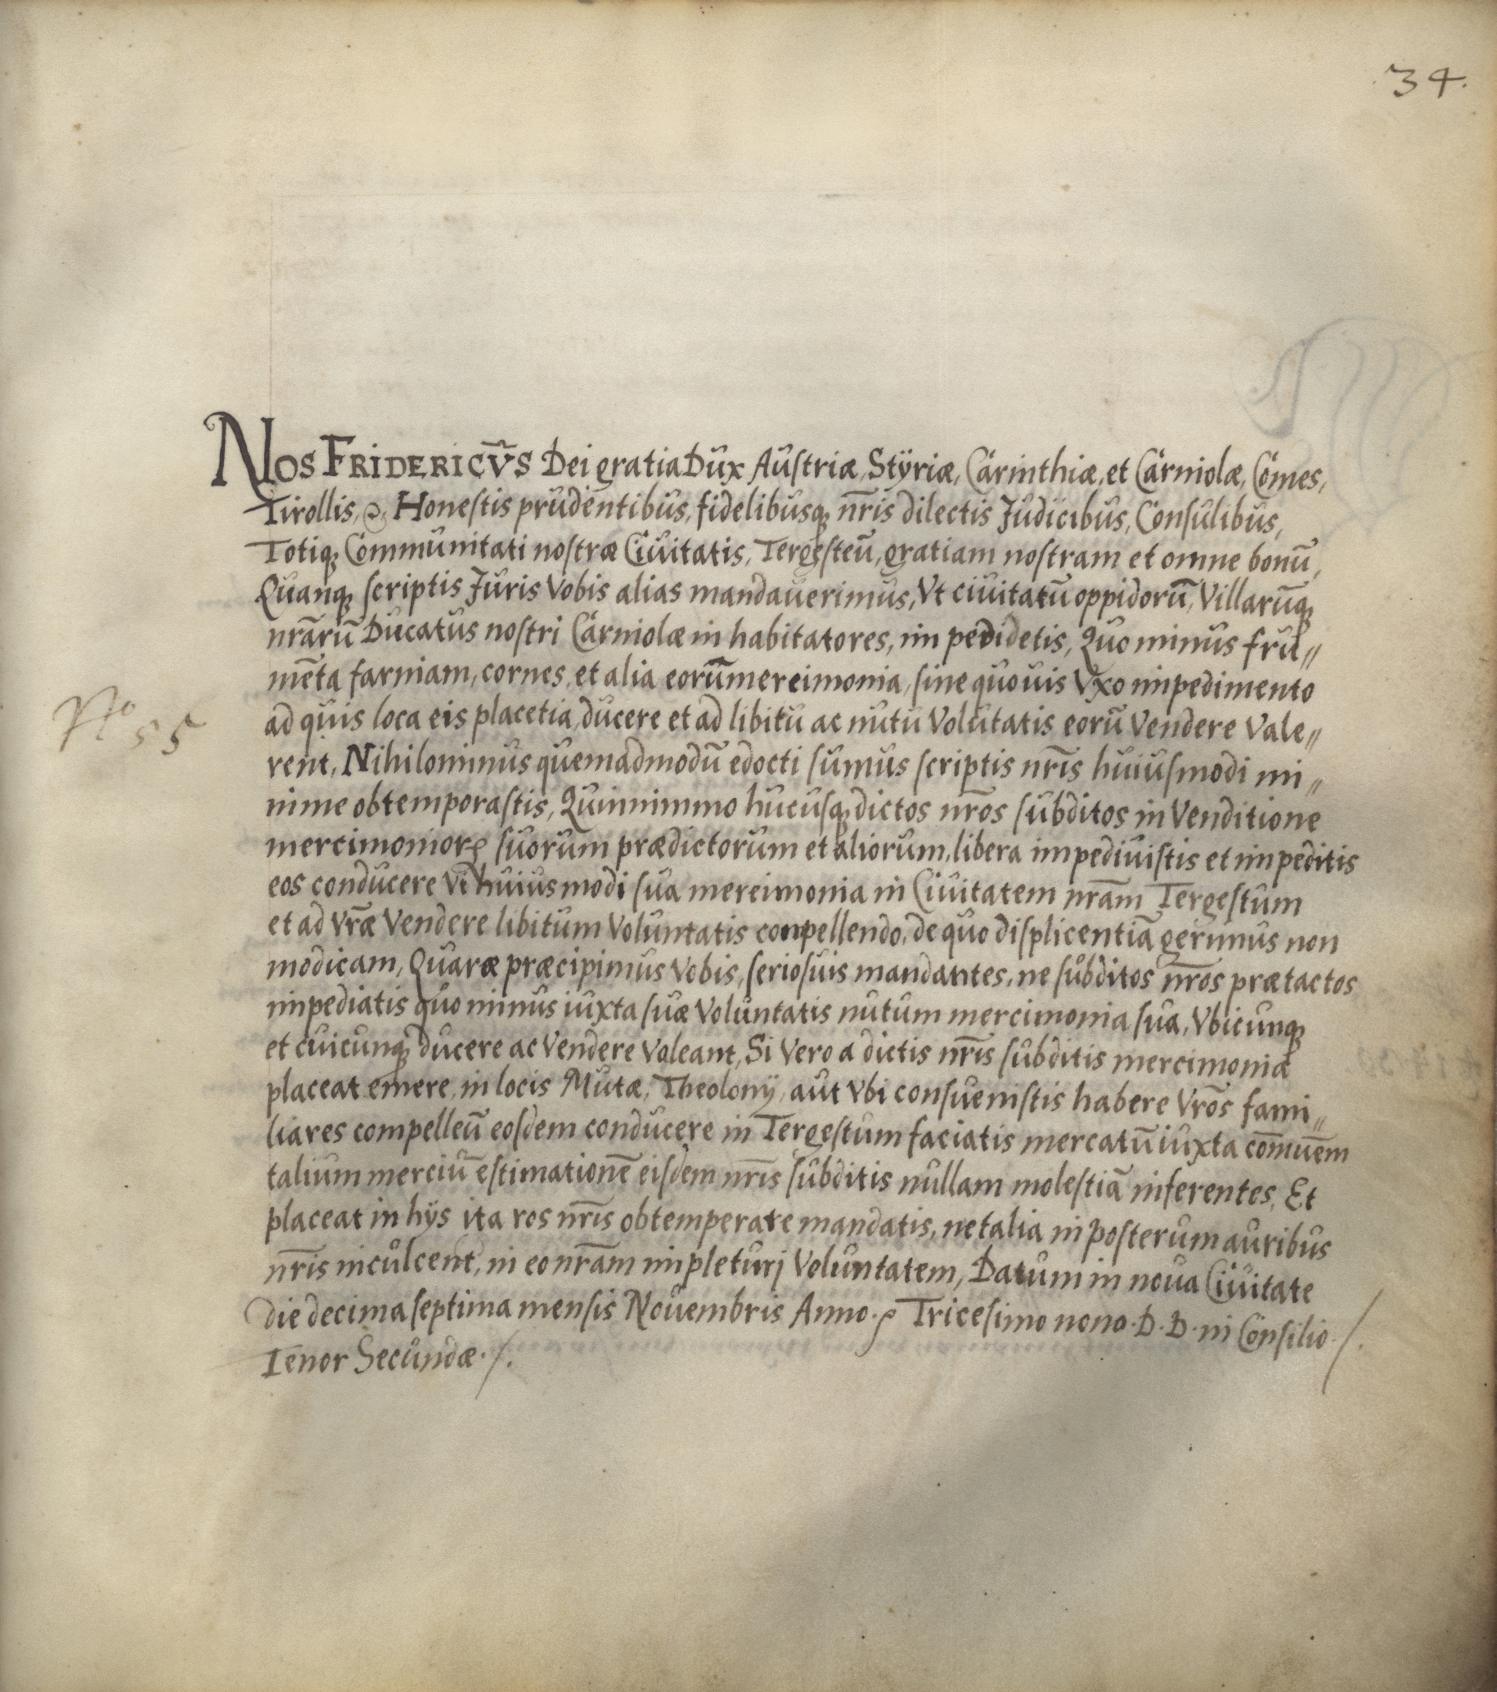 34.
NOS FRIDERICVS Dei gratia Dux Austriæ, Styriæ, Carinthiæ, et Carniolæ, Comes,
Tirollis, &, Honestis prudentibus, fidelibusq; nr̃is dilectis Judicibus, Consulibus,
Totiq; Communitati nostræ Ciuitatis, Tergesteũ, gratiam nostram et omne bonũ,
Quanq; scriptis Juris Vobis alias mandauerimus, Vt ciuitatũ oppidorũ, Villarũq;
nrãrũ Ducatus nostri Carniolæ in habitatores, im pedidetis, Quo minus fru〃
mẽta farniam, cornes, et alia eorũ mereimonia, sine quouis Vxo impedimento
ad quis loca eis placetia, ducere et ad libitũ ac nutu Volũtatis eorũ Vendere Vale〃
rent, Nihilominus quemadmodũ edocti sumus scriptis nr̃is huiusmodi mi〃
nime obtemporastis, Quinnimmo hucusq; dictos nr̃os subditos in Venditione
mercimonior̃ suorum prædictorum et aliorum, libera impediuistis et impeditis
eos conducere Vt huiusmodi sua mereimonia in Ciuitatem nrãm Tergestum
et ad Vr̃æ Vendere libitum Voluntatis conpellendo, de quo displicentiã gerimus non
modicam, Quaræ præcipimus Vobis, seriosuis mandantes, ne subditos nr̃os prætactos
impediatis quo minus iuxta suæ Voluntatis nutum mercimonia sua, Vbicunq;
et cuicunq; ducere ac Vendere Valeant, Si Vero a dictis nr̃is subditis mercimonia
placeat emere, in locis Mutæ, Theolonÿ, aut Vbi consueuistis habere Vr̃os fami〃
liares compelleũ eosdem conducere in Tergestum faciatis mercatũ iuxta com̃uẽm
talium merciũ estimationẽ eisdem nr̃is subditis nullam molestiã inferentes, Et
placeat in hÿs ita ros nr̃is obtemperate mandatis, ne talia in posterum auribus
nr̃is inculcent, in eo nrãm impleturj Voluntatem, Datum in noua Ciuitate
N.o 55
die decima septima mensis Nouembris Anno. Tricesimo nono. D. D. in Consilio ./.
Tenor Secundæ ./.